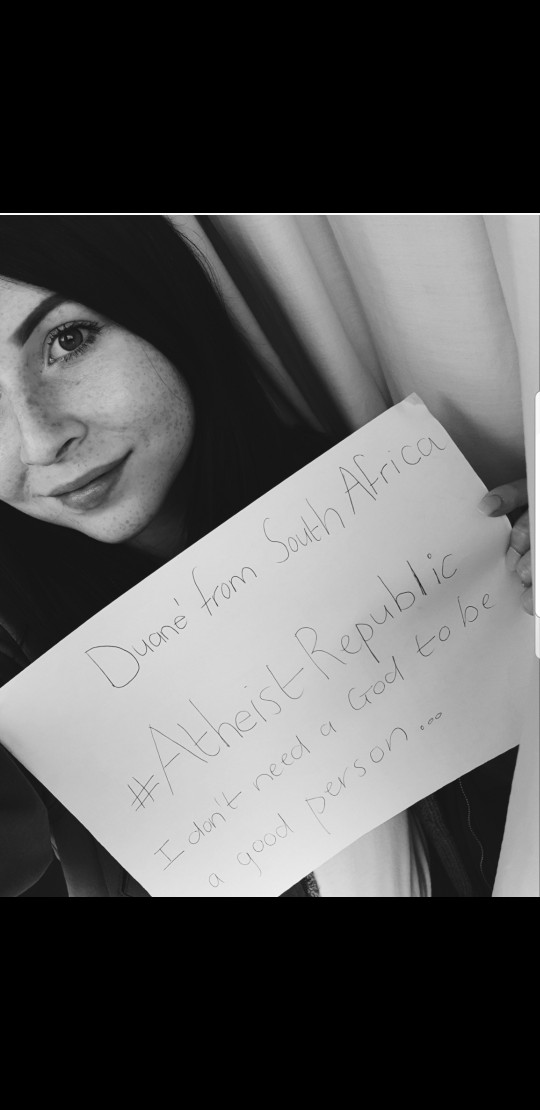 Duané from South Africa
#Atheist Republic
I don't need a God to be
a good person...